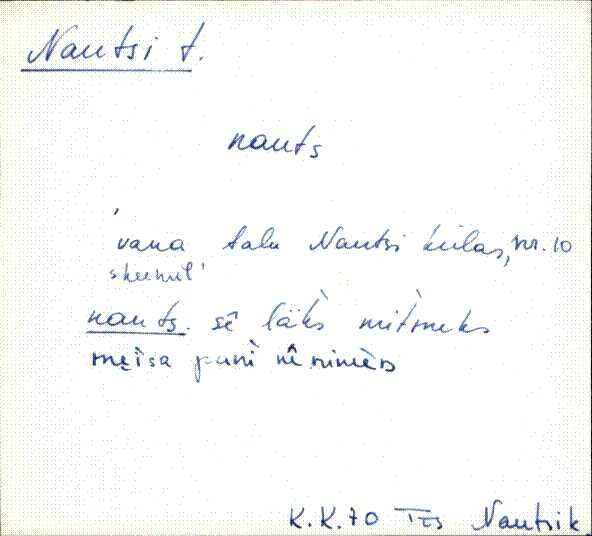 Nautsi t.
nauts
'vana talu Nautsi külas, nr. 10
skeemil'
nauts. sē läks mitmeks
meisa puni nê nimèn
K.K. 70 Tõs Nautsik